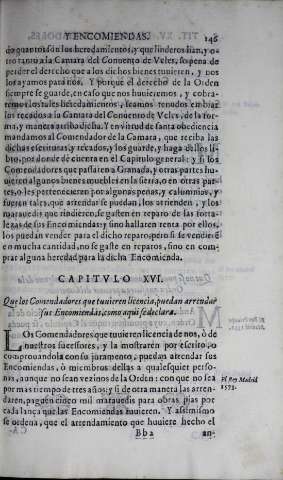 Y ENCOMIENDAS. 146
do quantos son los heredamientos, y que linderos han, y o-
tro tanto a la Camara del Conuento de Vcles, so pena de
perder el derecho que a los dichos bienes tuuieren, y nos
lo ayamos para nos. Y porque el derecho de la Orden
siempre se guarde, en caso que nos huuieremos, y cobra-
remos los tales heredamientos, seamos tenudos embiar
los recados a la Camara del Conuento de Vcles, de la for-
ma, y manera arriba dicha. Y en virtud de santa obediencia
mandamos al Comendador de la Camara, que reciba las
dichas escrituras, y recados, y los guarde, y haga dellos li-
bro, por donde dè cuenta en el Capitulo general: y si los
Comendadores que passaren a Granada, y otras partes hu-
uieren algunos bienes muebles en la sierra, o en otras par-
tes, o les pertenecieren por algunas penas, y calumnias, y
fueren tales, que arrendar se puedan, los arrienden, y los
marauedis que rindieren, se gasten en reparo de las forta-
lezas de sus Encomiendas: y sino hallaren renta por ellos,
los puedan vender para el dicho reparo, pero si se vendiere
en mucha cantidad, no se gaste en reparos, sino en com-
prar alguna heredad para la dicha Encomienda.
CAPITVLO XVI.
Que los Comendadores que tuuieren licencia, puedan arrendar
sus Encomiendas, como aqui se declara.
LOs Comendadores que tuuieren licencia de nos, ò de
nuestros sucessores, y la mostraràn por escrito, o
comprouandola con su juramento, puedan arrendar sus
Encomiendas, ò miembros dellas a qualesquier perso-
nas, aunque no sean vezinos de la Orden: con que no sea
por mas tiempo de tres años; y si de otra manera las arren-
daren, paguen cinco mil marauedis para obras pias por
cada lança que las Encomiendas tuuieren. Y assimismo
se ordena, que el arrendamiento que huuiere hecho el
El Rey Madrid
1573.
Bb2 an-